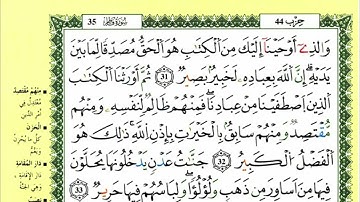 حزب 44
سورة فاطر 35
وَالَّذِي أَوْحَيْنَا إِلَيْكَ مِنَ الْكِتَابِ هُوَ الْحَقُّ مُصَدِّقًا لِمَا بَيْنَ
يَدَيْهِ إِنَّ اللَّهَ بِعِبَادِهِ لَخَبِيرٌ بَصِيرٌ 31 ثُمَّ أَوْرَثْنَا الْكِتَابَ
الَّذِينَ اصْطَفَيْنَا مِنْ عِبَادِنَا فَمِنْهُمْ ظَالِمٌ لِنَفْسِهِ وَمِنْهُمْ
مُقْتَصِدٌ وَمِنْهُمْ سَابِقٌ بِالْخَيْرَاتِ بِإِذْنِ اللَّهِ ذَلِكَ هُوَ
الْفَضْلُ الْكَبِيرُ 32 جَنَّاتُ عَدْنٍ يَدْخُلُونَهَا يُحَلَّوْنَ
فِيهَا مِنْ أَسَاوِرَ مِنْ ذَهَبٍ وَلُؤْلُؤًا وَلِبَاسُهُمْ فِيهَا حَرِيرٌ 33
مِنْهُمْ مُقْتَصِدٌ
مُعْتَدِلٌ فِي
أَمْرِ الدِّينِ
الْحَزَنَ
كُلَّ مَا يُحْزِنُ
دَارَ الْمُقَامَةِ
دَارَ الْإِقَامَةِ